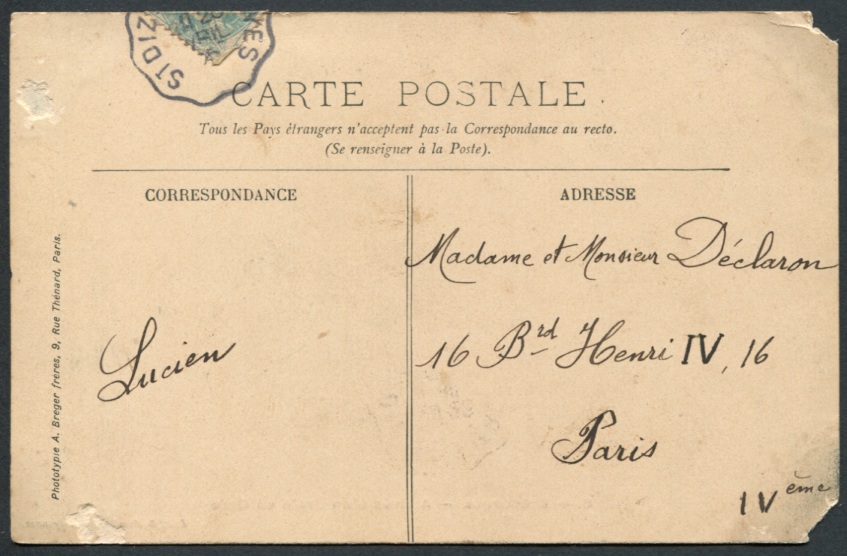 ST DIZ
CARTE POSTALE.
Tous les Pays étrangers n'acceptent pas la Correspondance au recto.
(Se renseigner à la Poste).
CORRESPONDANCE
ADRESSE
Madame et Monsieur Déclaron
16 Brd Henri IV, 16
Paris
IVème
Lucien
Phototypie A. Breger frères, 9, Rue Thénard, Paris.